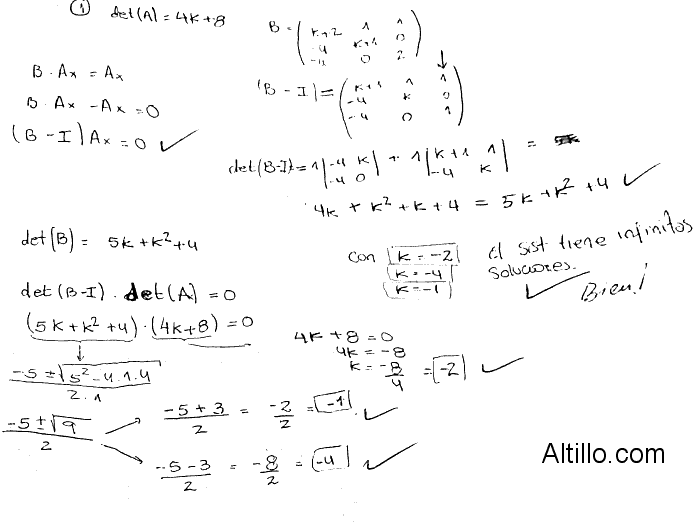 ① det(A) = 4k+8
B = ( k+2 1 1
-4 k+1 0
-4 0 2 )
B · Ax = Ax
B · Ax - Ax = 0
(B - I) Ax = 0 ✓
|B - I| = ( k+1 1 1
-4 k 0
-4 0 1 )
det(B-I) = 1 |-4 k| + 1 |k+1 1| =
|-4 0| |-4 k|
4k + k² + k + 4 = 5k + k² + 4 ✓
det(B) = 5k + k² + 4
con k = -2 El sist tiene infinitos
k = -4 soluciones.
k = -1 ✓ Bien!
det(B-I) · det(A) = 0
(5k + k² + 4) · (4k+8) = 0
4k + 8 = 0
4k = -8
k = -8/4 = -2 ✓
-5 ± √5² - 4.1.4
2 . 1
-5 ± √9
2
-5 + 3 / 2 = -2/2 = -1 ✓
-5 - 3 / 2 = -8/2 = -4 ✓
Altillo.com